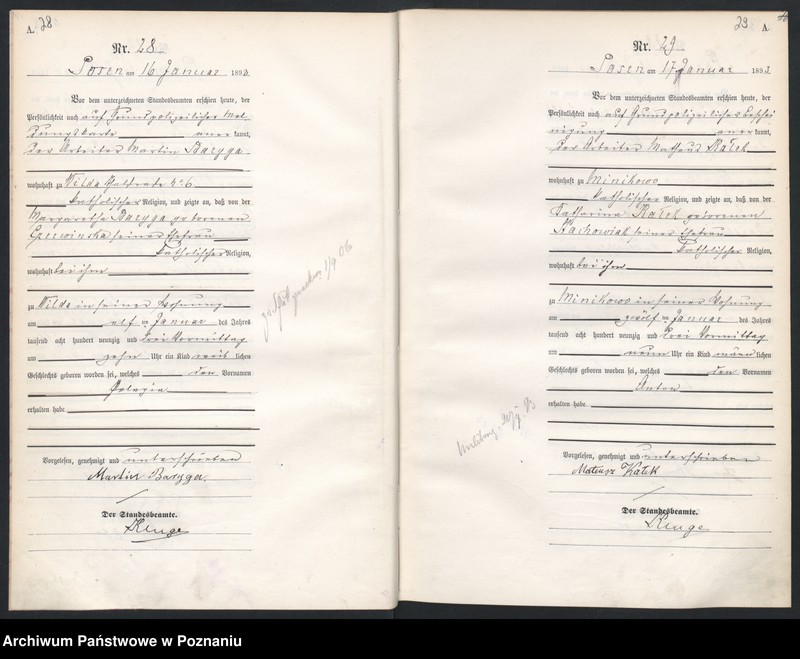 A. 28
Nr. 28
Posen am 16 Januar 1893.
Vor dem unterzeichneten Standesbeamten erschien heute, der
Persönlichkeit nach auf Grund polizeilicher Mel-
dungskarte anerkannt,
der Arbeiter Martin Baryga
wohnhaft zu Wilda
katholischer Religion, und zeigte an, daß von der
Margaretha Baryga geborenen
seiner Ehefrau
katholischer Religion,
wohnhaft bei ihm
zu Wilda in seiner Wohnung
am elf ten Januar des Jahres
tausend acht hundert neunzig und drei Vormittag
um zehn Uhr ein Kind weib lichen
Geschlechts geboren worden sei, welches den Vornamen
Pelagia
erhalten habe
Vorgelesen, genehmigt und unterschrieben
Martin Baryga.
Der Standesbeamte.
Kluge
29 A.
Nr. 29
Posen am 17 Januar 1893.
Vor dem unterzeichneten Standesbeamten erschien heute, der
Persönlichkeit nach auf Grund polizeilicher beschei
nigung anerkannt,
der Arbeiter Matheus Ratek
wohnhaft zu Minikowo
katholischer Religion, und zeigte an, daß von der
Katharina Ratek geborenen
Stachowiak seiner Ehefrau
katholischer Religion,
wohnhaft bei ihm
zu Minikowo in seiner Wohnung
am zwölf ten Januar des Jahres
tausend acht hundert neunzig und drei Vormittag
um neun Uhr ein Kind männ lichen
Geschlechts geboren worden sei, welches den Vornamen
Anton
erhalten habe
Vorgelesen, genehmigt und unterschrieben
Mateusz Ratek
Der Standesbeamte.
Kluge
Archiwum Państwowe w Poznaniu